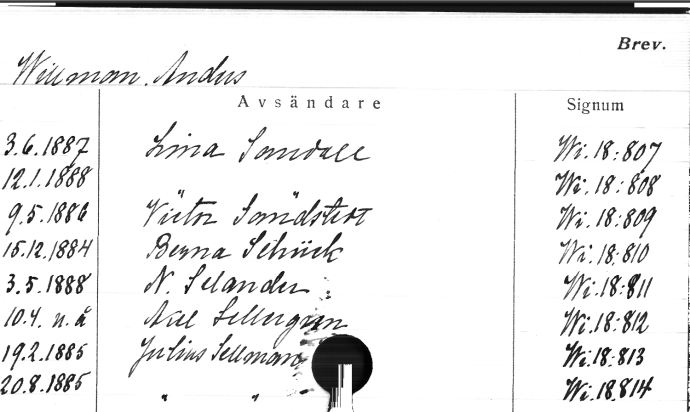 Brev.
Willman. Anders
Avsändare Signum
3.6.1887 Lina Sandell Wi.18:807
12.1.1888 " " Wi.18:808
9.5.1886 Victor Sandstedt Wi.18:809
15.12.1884 Berna Schück Wi.18:810
3.5.1888 N. Selander Wi.18:811
10.4. u.å Axel Sellergren Wi.18:812
19.2.1885 Julius Sellman Wi.18:813
20.8.1885 " " Wi.18.814